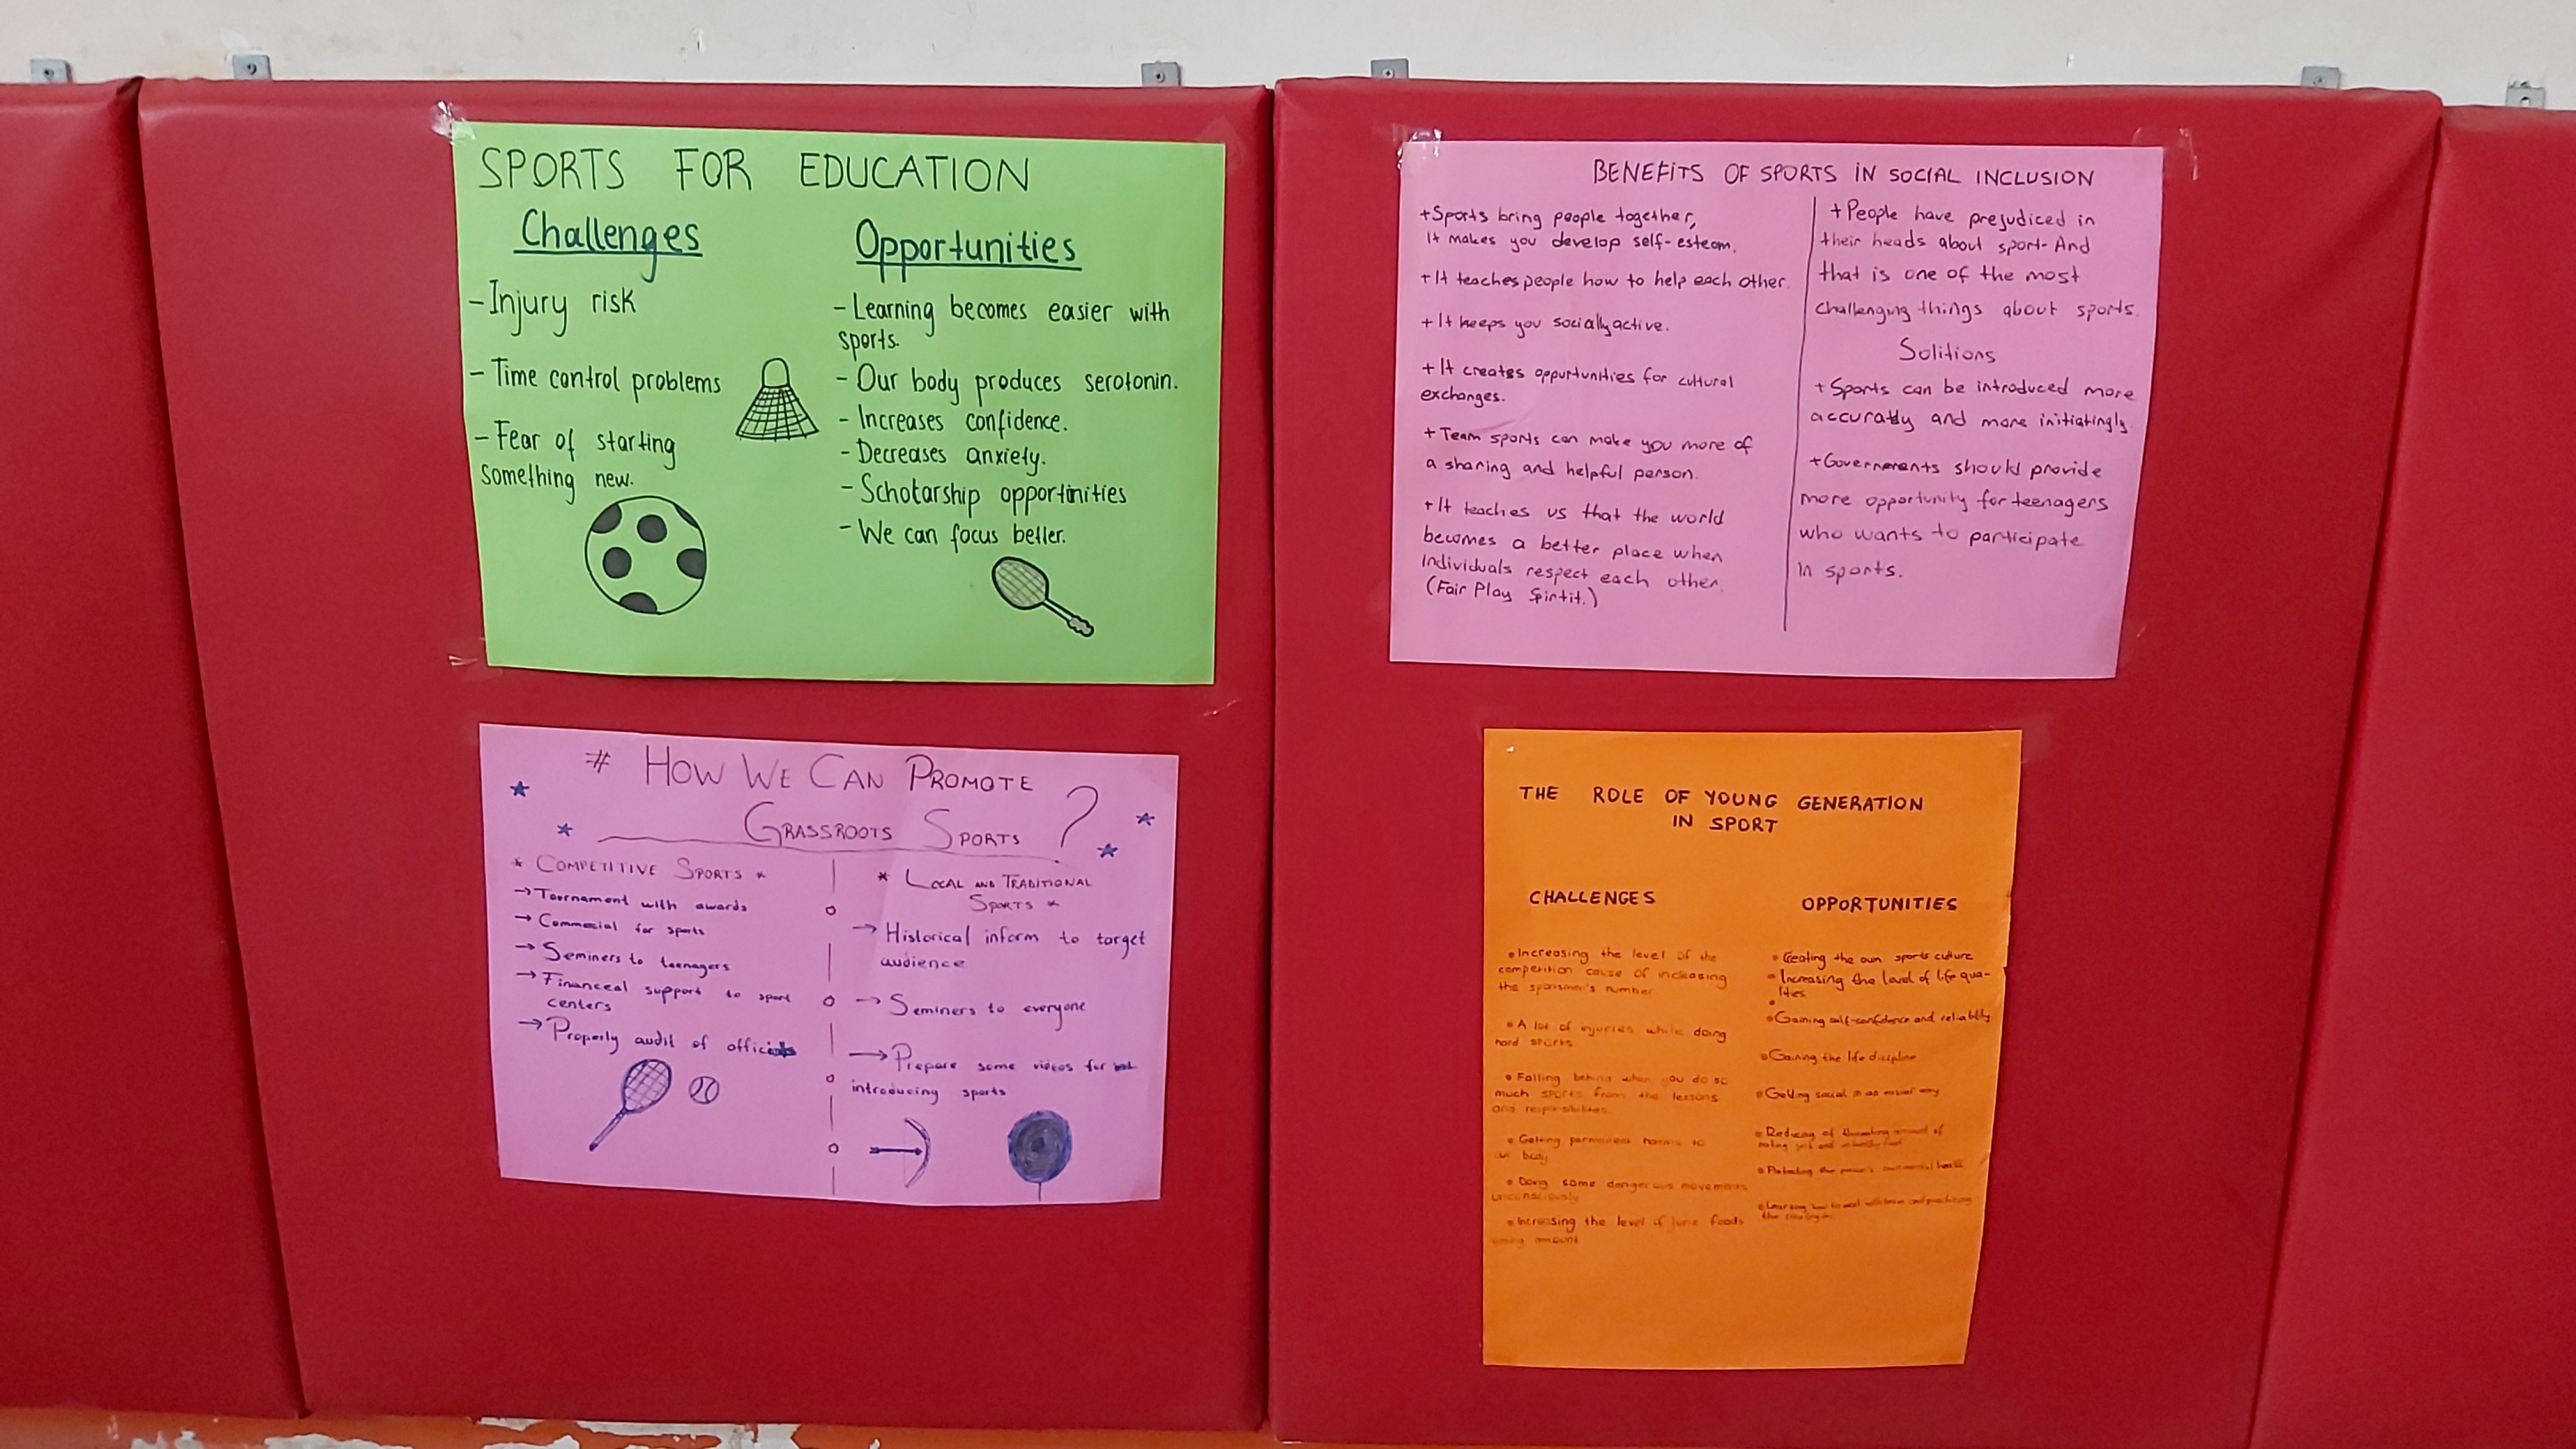 SPORTS FOR EDUCATION
Challenges
-Injury risk
-Time control problems
-Fear of starting
something new.
Opportunities
-Learning becomes easier with
sports.
-Our body produces serotonin.
-Increases confidence.
-Decreases anxiety.
-Scholarship opportinities
-We can focus better.
BENEFITS OF SPORTS IN SOCIAL INCLUSION
+Sports bring people together,
It makes you develop self-esteem.
+It teaches people how to help each other.
+It keeps you socially active.
+It creates oppurtunities for cultural
exchanges.
+Team sports can make you more of
a sharing and helpful person.
+It teaches us that the world
becomes a better place when
individuals respect each other.
(Fair Play Spirtit.)
+People have prejudiced in
their heads about sport-And
that is one of the most
challenging things about sports.
Solitions
+Sports can be introduced more
accuratly and more initiatingly.
+Governements should provide
more opportunity for teenagers
who wants to participate
in sports.
# HOW WE CAN PROMOTE
GRASSROOTS SPORTS ?
* COMPETITIVE SPORTS *
→Tournament with awards
→Commecial for sports
→Seminers to teenagers
→Financeal support to sport
centers
→Properly audit of
* LOCAL AND TRADITIONAL
SPORTS *
→Historical inform to target
audience
→Seminers to everyone
→Prepare some videos for
introducing sports
THE ROLE OF YOUNG GENERATION
IN SPORT
CHALLENGES
•Increasing the level of the
competition cause of increasing
the sportsmen's number
•A lot of injuries while doing
hard sports
•Falling behind when you do so
much sports from the lessons
and
•Getting permanent harms to
our body
•Doing some dangerous movements
unconsciously
•Increasing the level of foods
amount
OPPORTUNITIES
•Creating the own sports culture
•Increasing the level of life qua-
lities
•Gaining self-confidence and reliability
•Gaining the life discipline
•Getting social in an easier way
•Reducing of amount of
•Protecting the health
•Learning how to